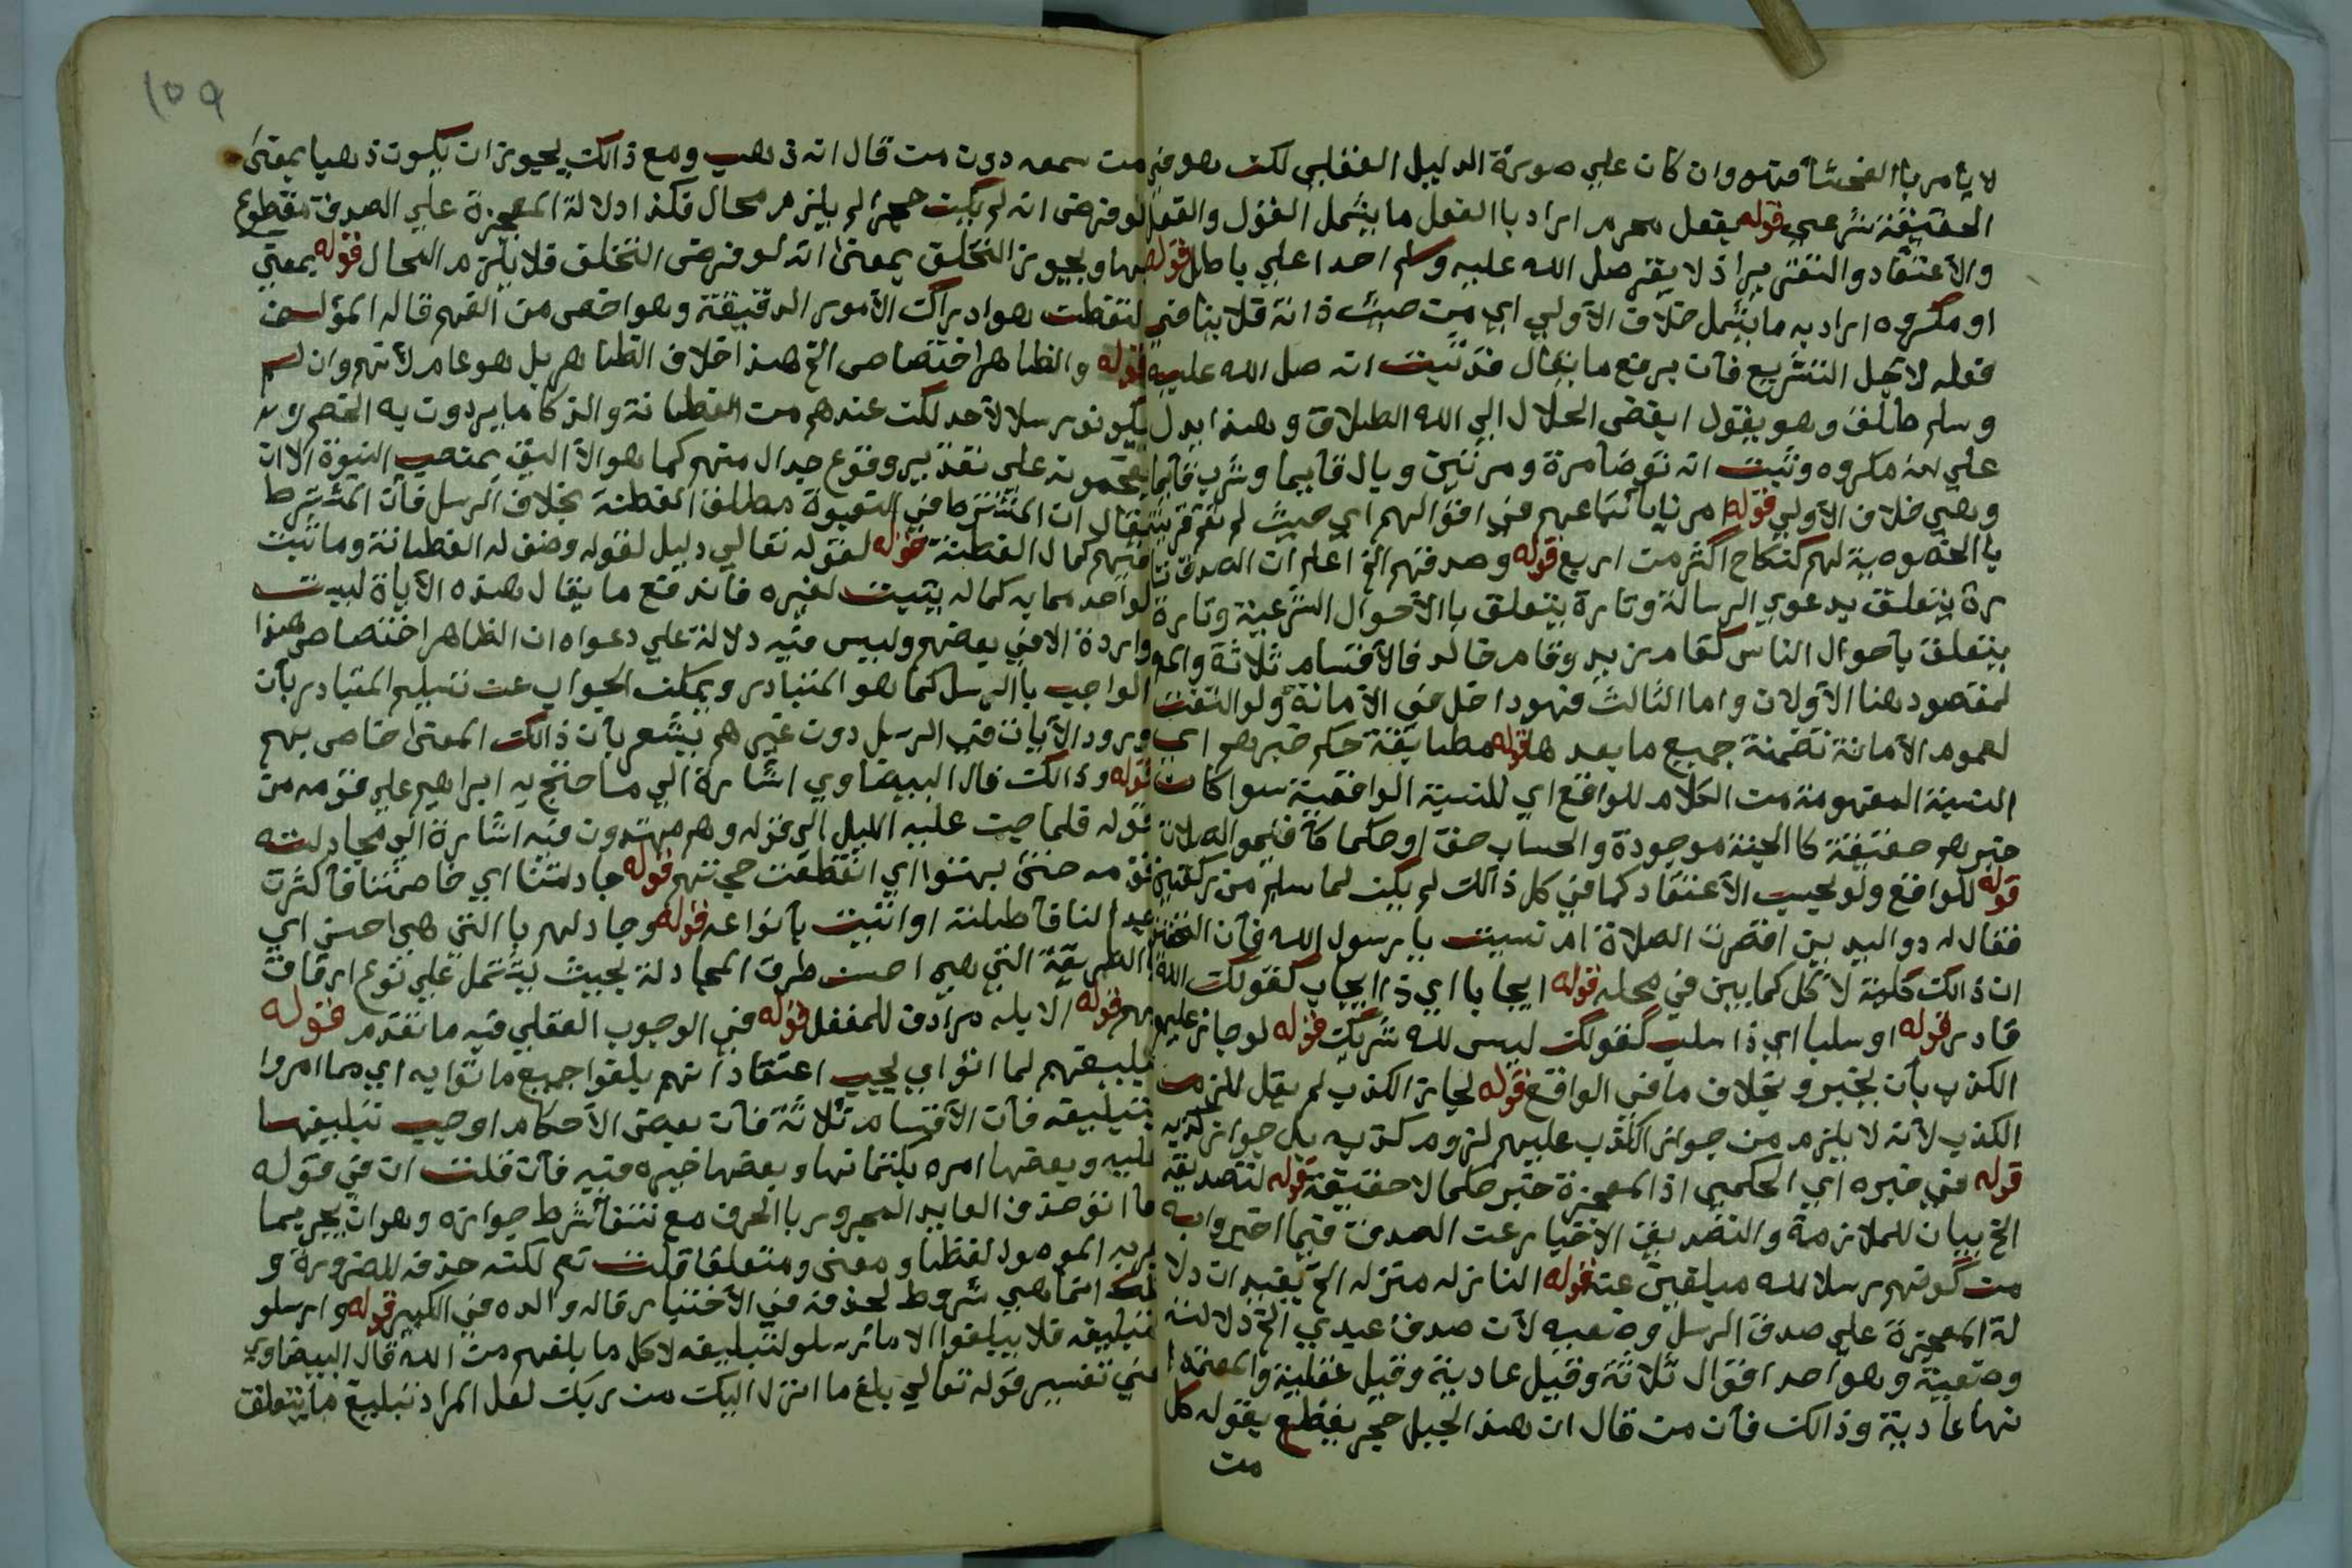 لا يأمر بالفحشا فهو وان كان علي صورة الدليل العقلي لكن هو في
الحقيقة شرعي قوله بفعل محرم اراد باالفعل ما يشمل القول والفعل
والأعتقاد والتقرير اذ لا يقر صل الله عليه وسلم احدا علي باطل قوله
او مكروه اراد به ما يشمل خلاف الأولي اي من حيث ذاته فلا ينافي
فعله لاجل التشريع فأن يرفع ما يقال قد ثبت انه صل الله عليه
وسلم طلق وهو يقول ابغض الحلال الي الله الطلاق وهذا يدل
علي انه مكروه وثبت انه توضأ مرة ومرتين وبال قايما وشرب قائما
وهي خلاف الأولي قوله امرنا بأتباعهم في اقوالهم اي حيث لم تقم قرينة
باالخصوصية لهم كنكاح اكثر من اربع قوله وصدقهم الخ اعلم ان الصدق تا
رة يتعلق بدعوي الرسالة وتارة يتعلق باالأحوال الشرعية وتارة
يتعلق بأحوال الناس كقام زيد وقام خالد فالأقسام ثلاثة والم
لمقصود هنا الأولان واما الثالث فهو داخل في الأمانة ولو التفت
لعموم الأمانة تضمنة جميع ما بعدها قوله مطابقة حكم خبرهم اي
النسبة المفهومة من الكلام للواقع اي للنسبة الواقعية سوا كان
خبرهم حقيقة كاالجنة موجودة والحساب حق او حكما كأقيموا الصلاة
قوله للواقع ولو بحسب الأعتقاد كما في كل ذالك لم يكن لما سلم من ركعتين
فقال له ذو اليدين اقصرت الصلاة ام نسيت يا رسول الله فأن
ان ذالك كلية لا كل كما بين في محله قوله ايجابا اي ذا ايجاب كقولك الله
قادر قوله او سلبا اي ذا سلب كقولك ليس لله شريك قوله لو جاز عليهم
الكذب بأن يخبرو بخلاف ما في الواقع قوله لجاز الكذب لم يقل للزم
الكذب لأنه لا يلزم من جواز الكذب عليهم لزوم كذبه بل جواز كذبه
قوله في خبره اي الحكمي اذ المعجزة خبر حكما لا حقيقة قوله لتصديقه
الخ بيان للملازمة والتصديق الأخبار عن الصدق فيما اخبروا به
من كونهم رسلا لله مبلغين عنه قوله النازلة منزلة الخ يفيد ان دلا
لة المعجزة علي صدق الرسل وضعيه لأن صدق عبدي الخ دلالته
وضعية وهو احد اقوال ثلاثة وقيل عادية وقيل عقلية والمعتمد
نها عادية وذالك فأن من قال ان هذا الجبل حجر يقطع بقوله كل
من
١٥٩
من سمعه دون من قال انه ذهب ومع ذالك يجوز ان يكون ذهبا بمعنى
لو فرض انه لم يكن حجرا لم يلزم محال فكذا دلالة المعجزة علي الصدق مقطوع
بها ويجوز التخلف بمعنى انه لو فرض التخلف فلا يلزم المحال قوله بمعني
لتفطن هو ادراك الأمور الدقيقة وهو اخص من الفهم قاله المؤلف
قوله والظاهر اختصاص الخ هذا خلاف الظاهر بل هو عام لأنهم وان لم
يكونو رسلا لأحد لكن عندهم من الفطانة والذكا ما يردون به الخصم و
يفحمونه علي تقدير وقوع جدال منهم كما هو الأليق بمنصب النبوة الا ان
يقال ان المشترط في النبوة مطلق الفطنة بخلاف الرسل فأن المشترط
فيهم كمال الفطنة قوله لقوله تعالي دليل لقوله وضف له الفطانة وما ثبت
لواحد مما به كماله يثبت لغيره فاندفع ما يقال هذه الأياة ليست
واردة الا في بعضهم وليس فيه دلالة علي دعواه ان الظاهر اختصاص هذا
الواجب باالرسل كما هو المتبادر ويمكن الجواب عن تسليم المتبادر بأن
ورود الأيات في الرسل دون غيرهم يشعر بأن ذالك المعنى خاص بهم
قوله وذالك قال البيضاوي اشارة الي ما احتج به ابراهيم علي قومه من
قوله فلما جن عليه الليل الي قوله وهم مهتدون فيه اشارة الي مجادلته
قومه حتى بهتوا اي انقطعت حجتهم قوله جادلتنا اي خاصمتنا فأكثرت
جدالنا فأطلته او اتيت بأنواعه قوله وجادلهم باالتي هي احسن اي
باالطريقة التي هي احسن طرق المجادلة بحيث يشتمل علي نوع ارفاق
بهم قوله الابله مرادف للمغفل قوله في الوجوب العقلي فيه ما تقدم قوله
تبليغهم لما اتو اي يجب اعتقاد انهم بلغوا جميع ما اتوا به اي مما امروا
بتبليغه فأن الأقسام ثلاثة فأن بعض الأحكام اوجب تبليغها
عليه وبعضها امره بكتمانها وبعضها خيره فيه فأن قلت ان في قوله
ما اتو حذف العايد المجرور باالحرف مع نتفا شرط جوازه وهو ان يجر بما
جر به الموصول لفظا ومعنى ومتعلقا قلت نعم لكنه حذفه للضرورة و
تلك انما هي شروط لحذفه في الأختيار قاله والده في الكبير قوله وارسلو
لتبليغه فلا يبلغوا الا ما ارسلو لتبليغه لا كل ما بلغهم من الله قال البيضاوي
في تفسير قوله تعالي بلغ ما انزل اليك من ربك لعل المراد تبليغ ما يتعلق